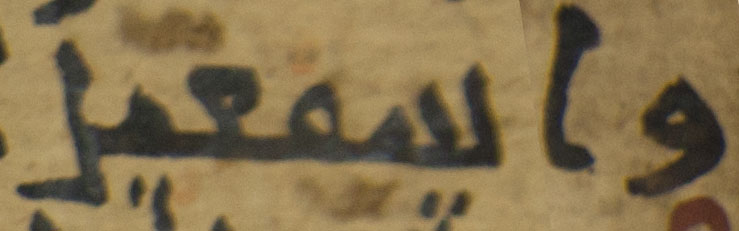 واسمعيل